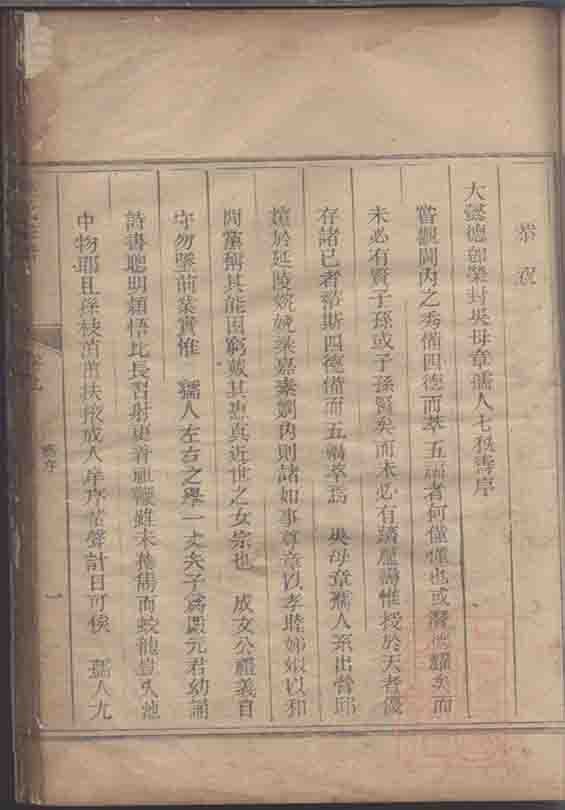 恭祝
大懿德卽榮封吳母章孺人七秩壽序
嘗觀閫內之秀備四德而萃五福者何僅僅也或潛德耀矣而
未必有賢子孫或子孫賢矣而未必有躋壽惟授於天者優
存諸己者幸斯四德備而五福萃焉 吳母章孺人系出營邱
嬪於延陵婉娩柔嘉素嫻內則諸如事尊章以孝睦娣姒以和
閭黨稱其能困窮戴其惠真近世之女宗也 成文公禮義自
守勿墜前業實惟 孺人左右之舉一丈夫子為殿元君幼誦
詩書聰明穎悟比長習射更着祖鞭雖未雋而蛟龍豈久池
中物耶且孫枝苗茁扶掖成人庠序蜚聲計日可俟 孺人九
壽序
一